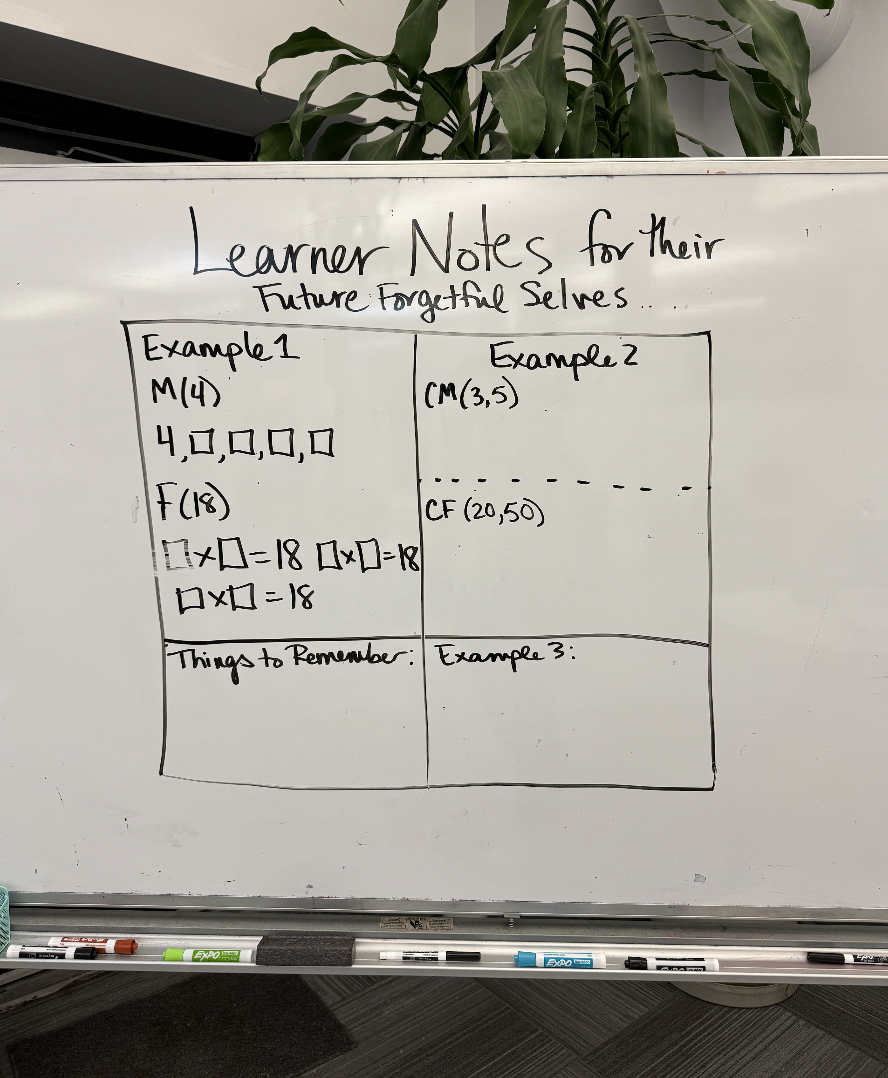 Learner Notes for their
Future Forgetful Selves...
Example 1
M(4)
4,□,□,□,□
F(18)
□×□=18 □×□=18
□×□=18
Example 2
CM(3,5)
CF(20,50)
Things to Remember:
Example 3:
EXPO
EXPO
EXPO